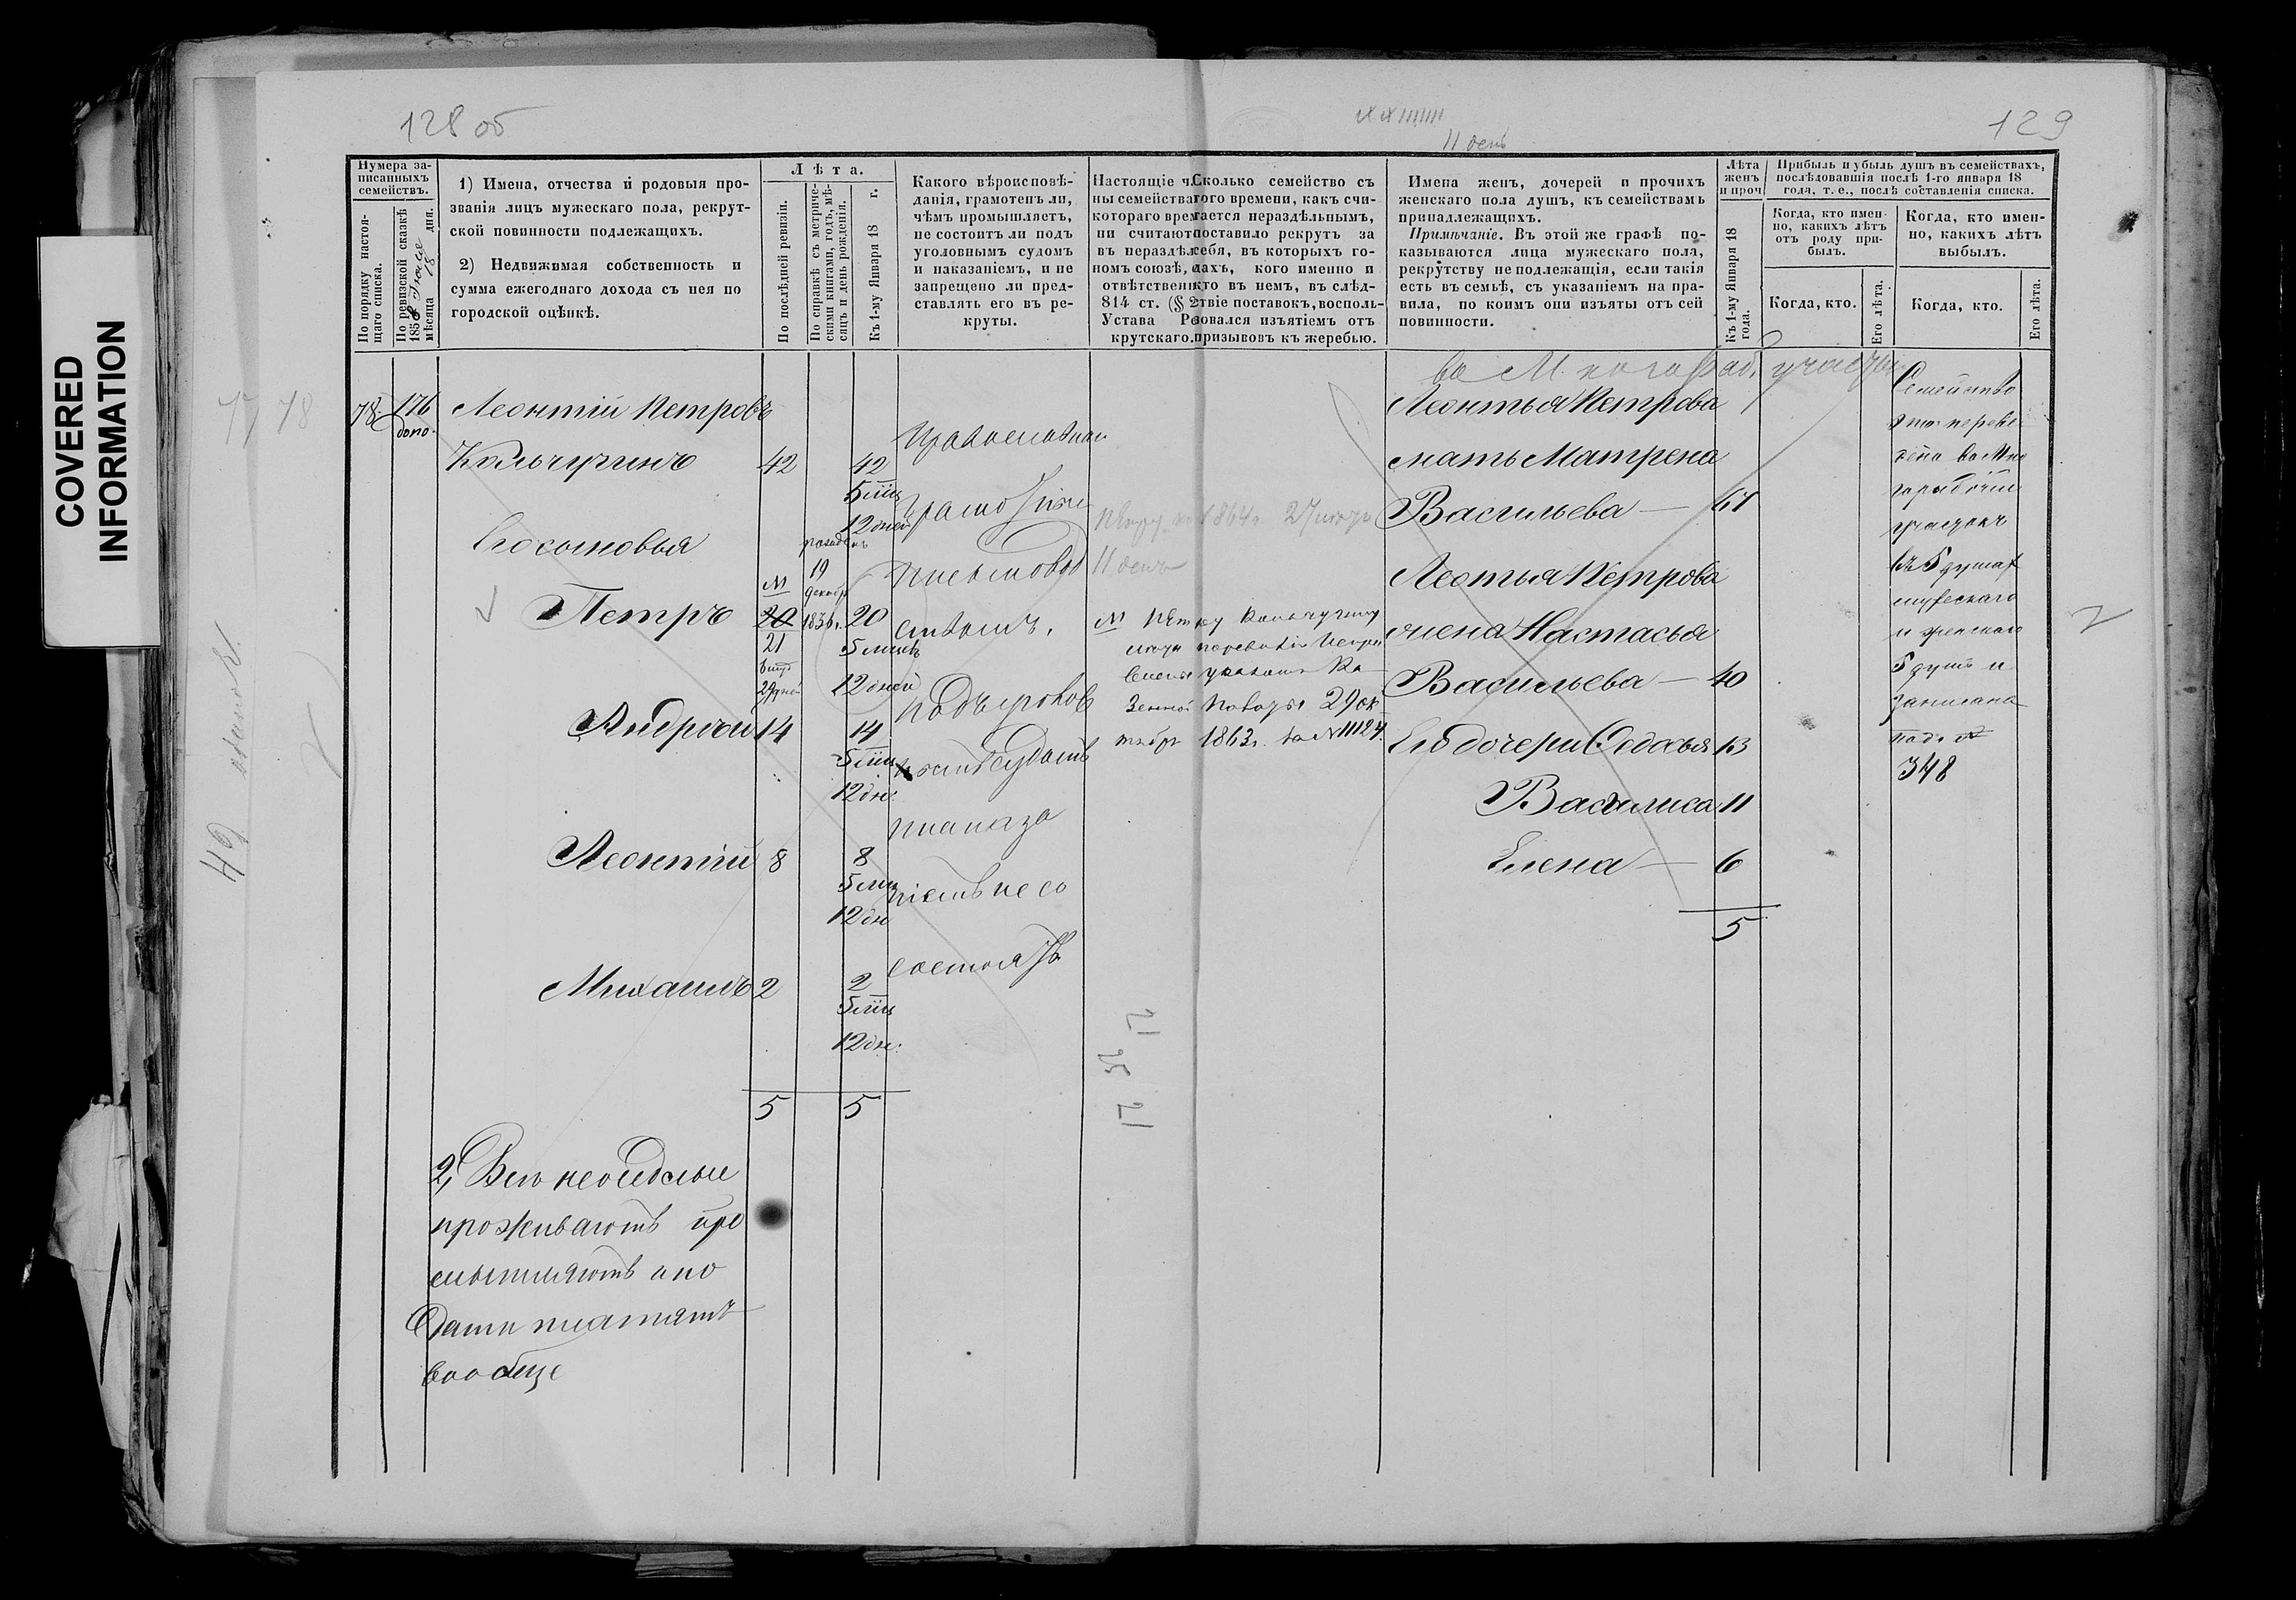 COVERED
INFORMATION
128 об
129
11 день
Нумера за-
писанныхъ
семействъ.
По порядку настоя-
щаго списка.
По ревизской сказкѣ
1858
мѣсяца 18 дня.
1) Имена, отчества и родовыя про-
званія лицъ мужескаго пола, рекрут-
ской повинности подлежащихъ.
2) Недвижимая собственность и
сумма ежегоднаго дохода съ нея по
городской оцѣнкѣ.
Лѣта.
По послѣдней ревизіи.
По справкѣ съ метриче-
скими книгами, годъ, мѣ-
сяцъ и день рожденія.
Къ 1-му Января 18 г.
Какого вѣроисповѣ-
данія, грамотенъ ли,
чѣмъ промышляетъ,
не состоитъ ли подъ
уголовнымъ судомъ
и наказаніемъ, и не
запрещено ли пред-
ставлять его въ ре-
круты.
Настоящіе ч
ны семейства
котораго врем
ни считают
въ нераздѣл
номъ союзѣ,
отвѣтствени
814 ст. (§ 2
Устава Ре
крутскаго.
Сколько семейство съ
того времени, какъ счи-
тается нераздѣльнымъ,
поставило рекрутъ за
себя, въ которыхъ го-
дахъ, кого именно и
кто въ немъ, въ слѣд-
ствіе поставокъ, восполь-
зовался изъятіемъ отъ
призывовъ къ жеребью.
Имена женъ, дочерей и прочихъ
женскаго пола душъ, къ семействамъ
принадлежащихъ.
Примѣчаніе. Въ этой же графѣ по-
казываются лица мужескаго пола,
рекрутству не подлежащія, если такія
есть въ семьѣ, съ указаніемъ на пра-
вила, по коимъ они изъяты отъ сей
повинности.
Лѣта
женъ
и проч
Къ 1-му Января 18
года.
Прибыль и убыль душъ въ семействахъ,
послѣдовавшія послѣ 1-го января 18
года, т. е., послѣ составленія списка.
Когда, кто имен-
но, какихъ лѣтъ
отъ роду при-
былъ.
Когда, кто имен-
но, какихъ лѣтъ
выбылъ.
Когда, кто.
Его лѣта.
Когда, кто.
Его лѣта.
77 78
78. 176
допо.
Леонтій Петровъ
Кольчугинъ 42 42
5 мцъ
12 дней
Его сыновья
Петръ 20 20
21
19
декабр
1836 г.
5 мцъ
12 дней
Андрей 14 14
5 мцъ
12 дне:
Леонтій 8 8
5 мцъ
12 дн
Михаилъ 2 2
5 мцъ
12 дне:
5 5
2, Всѣ неоседлые
проживаютъ про
мышляютъ и по
дати платятъ
вообще
Православнаго
подъ уголов
нымъ судомъ
и наказа
ніемъ не со
стоятъ
1864 г. 27
11 день
Петру Кольчугину
Зенной Палаты 29 ок
тября 1863 г. за № 11124.
Леонтья Петрова
мать Матрена
Васильева — 61
Леонтья Петрова
жена Настасья
Васильева — 40
Его дочери Федосья 13
Василиса 11
Елена — 6
5
Семейство
это переве
дено во Мно
горабочій
участокъ
въ 5 душах
мужескаго
и женскаго
5 душъ и
записана
подъ №
348
21
21
49